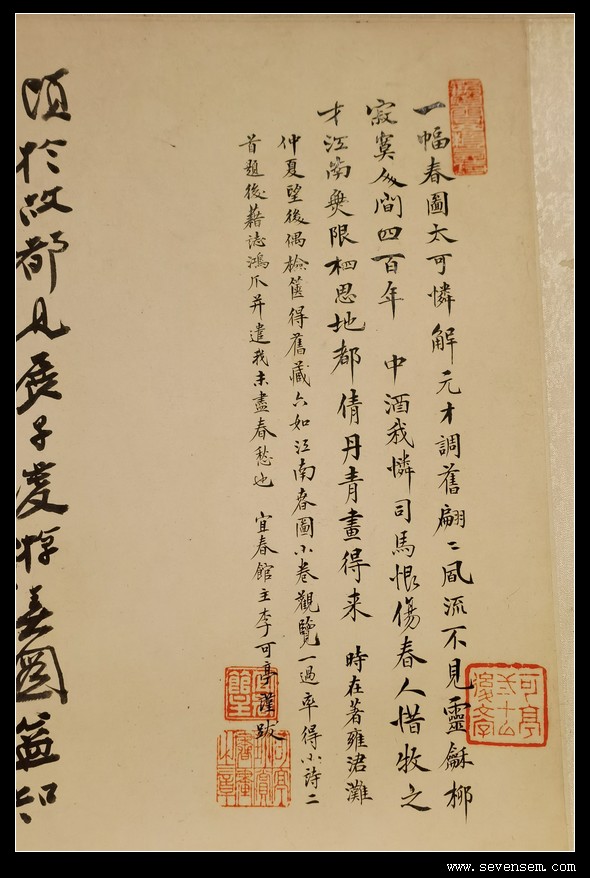 一幅春圖太可憐解元才調舊翩〻風流不見靈龢柳
寂寞人間四百年 中酒我憐司馬恨傷春人惜牧之
才江南無限相思地都倩丹青畫得来 時在著雍涒灘
仲夏望後偶檢篋得舊藏六如江南春圖小卷觀覽一過率得小詩二
首題後藉誌鴻爪并遣我未盡春愁也 宜春館主李可亭謹跋
頃於故都見展子虔游春圖益知
www.sevensem.com